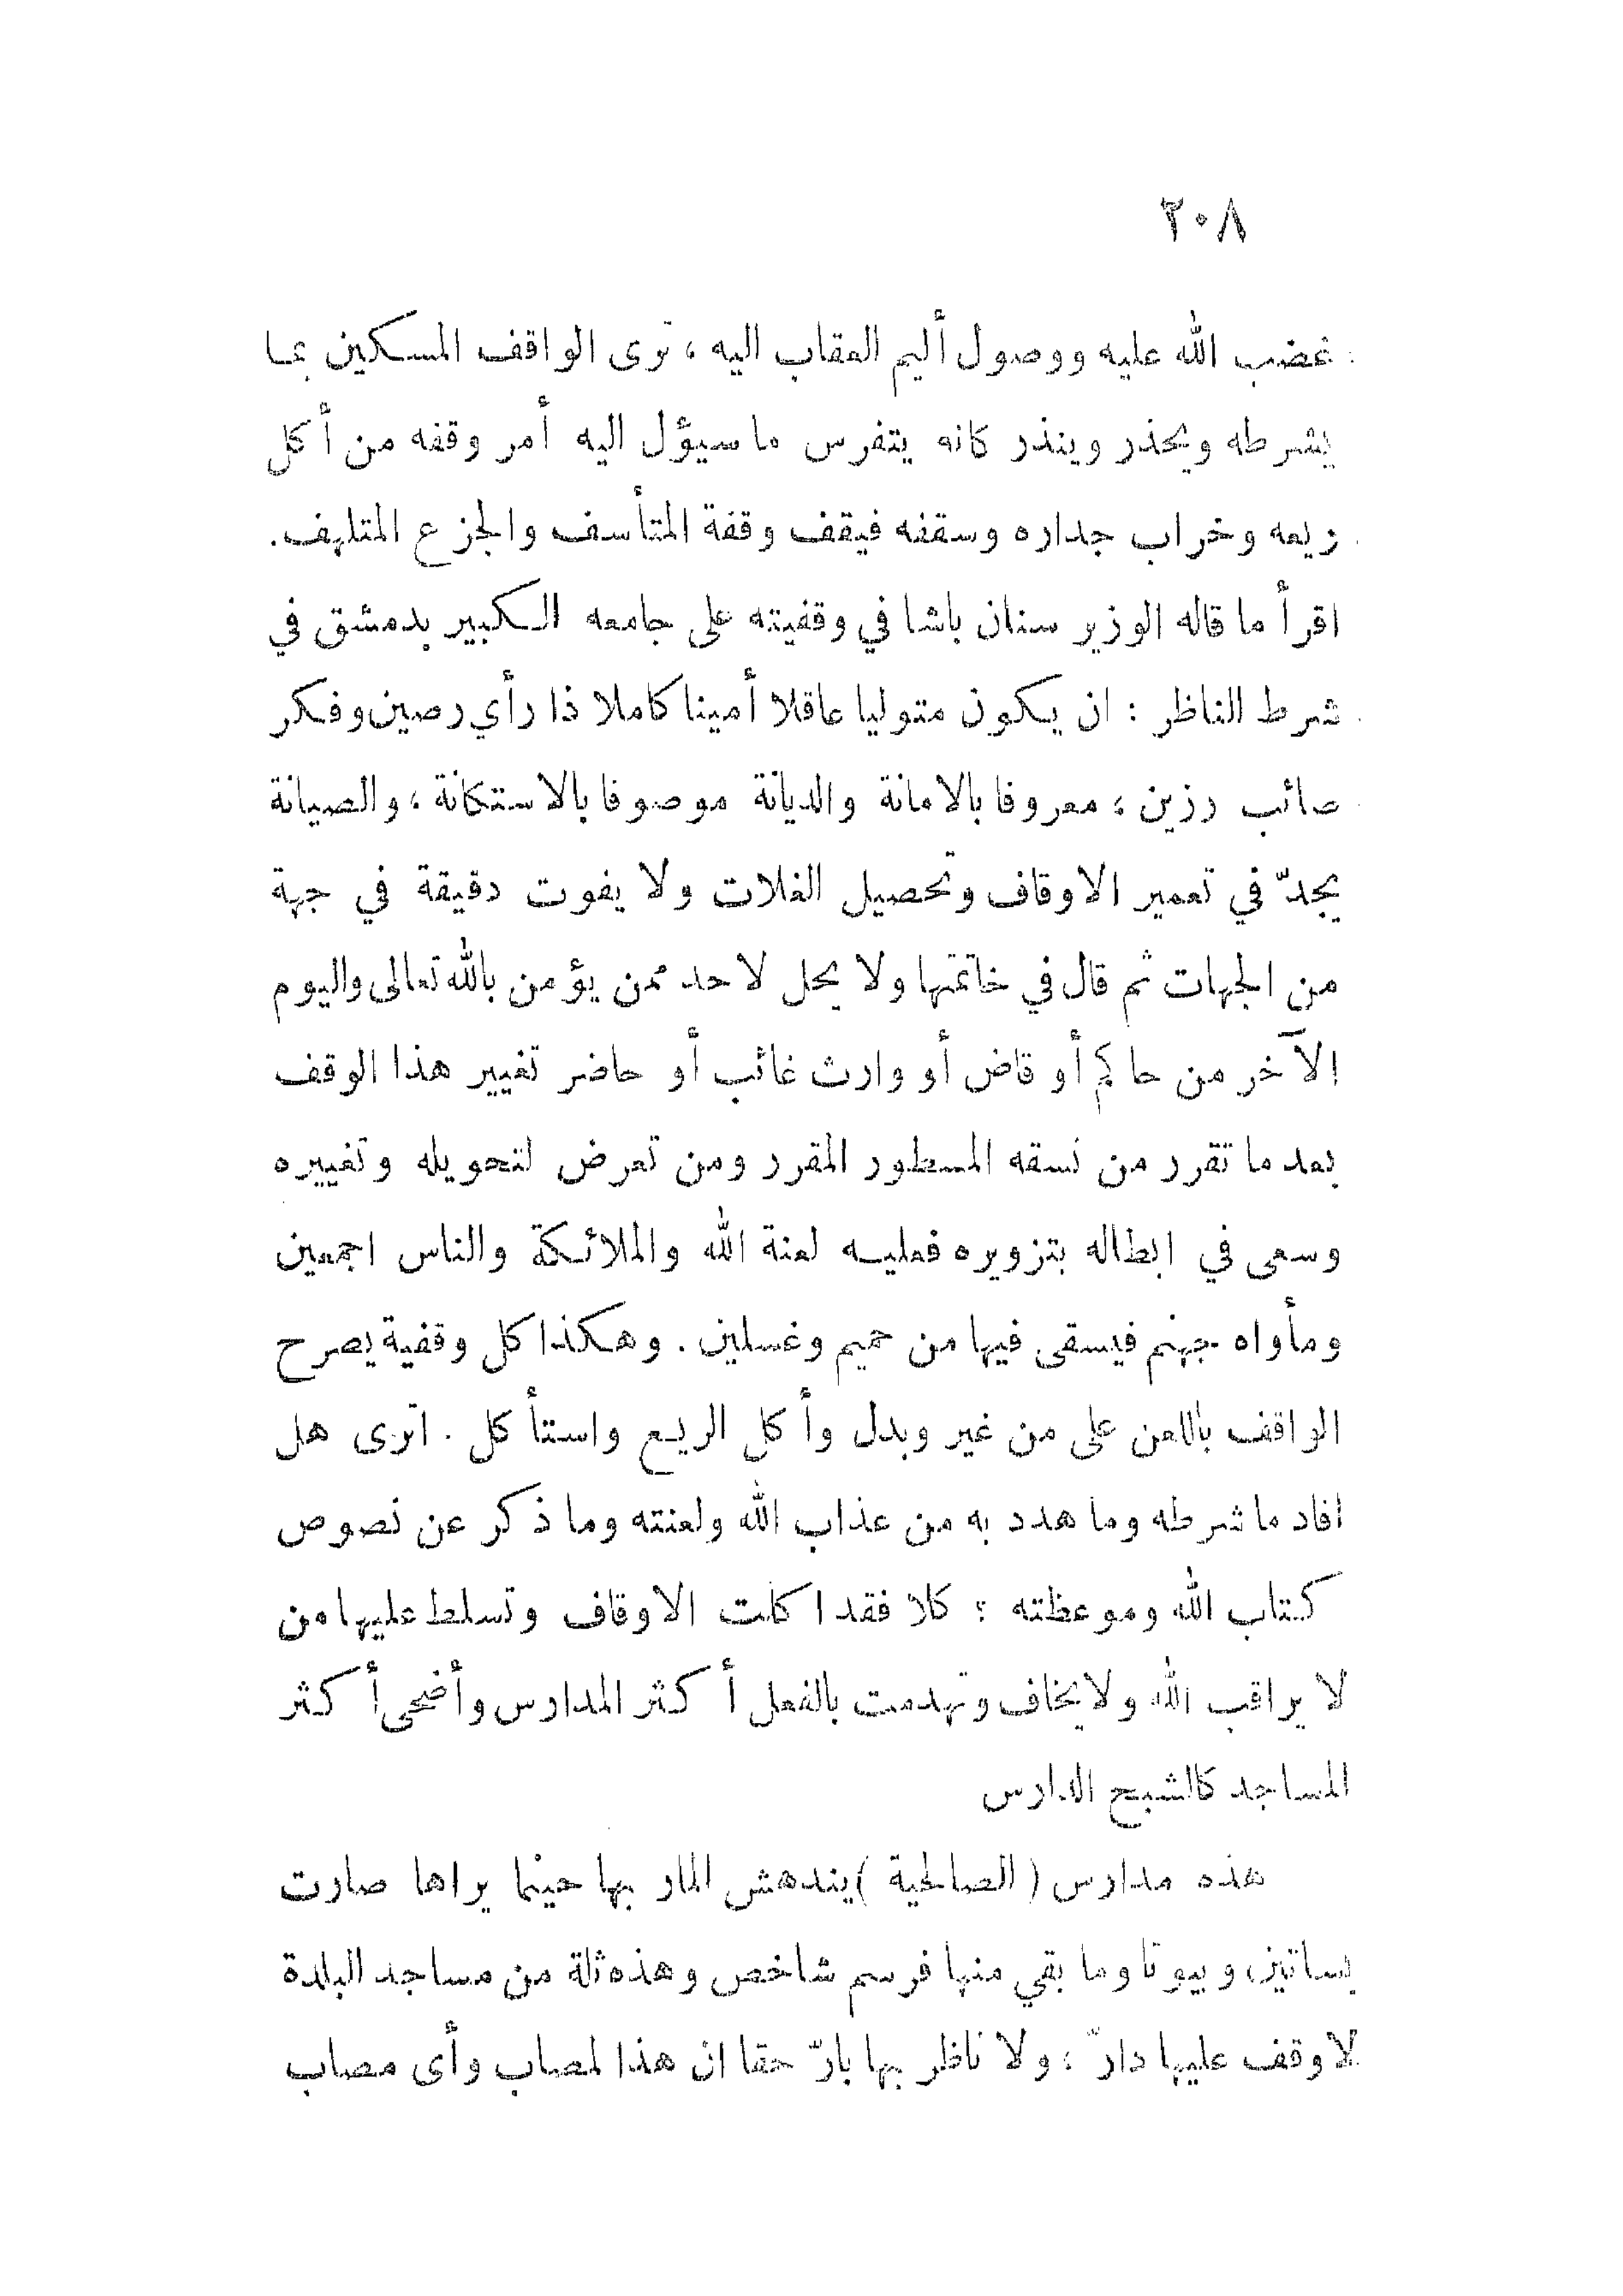 ٢٠٨
غضب الله عليه ووصول أليم العقاب اليه ، ترى الواقف المسكين بما
يشرطه ويحذر وينذر كانه يتفرس ما سيؤل اليه أمر وقفه من أكل
ريعه وخراب جداره وسقفه فيقف وقفة المتأسف والجزع المتلهف.
اقرأ ما قاله الوزير سنان باشا في وقفيته على جامعه الكبير بدمشق في
شرط الناظر : ان يكون متوليا عاقلا أمينا كاملا ذا رأي رصين وفكر
صائب رزين ، معروفا بالامانة والديانة موصوفا بالاستكانة ، والصيانة
يجدّ في تعمير الاوقاف وتحصيل الغلات ولا يفوت دقيقة في جهة
من الجهات ثم قال في خاتمتها ولا يحل لاحد ممن يؤمن بالله تعالى واليوم
الآخر من حاكم أو قاض أو وارث غائب أو حاضر تغيير هذا الوقف
بعد ما تقرر من نسقه المسطور المقرر ومن تعرض لتحويله وتغييره
وسعى في ابطاله بتزويره فعليه لعنة الله والملائكة والناس اجمعين
ومأواه جهنم فيسقى فيها من حميم وغسلين . وهكذا كل وقفية يصرح
الواقف باللعن على من غير وبدل وأكل الريع واستأكل . اترى هل
افاد ما شرطه وما هدد به من عذاب الله ولعنته وما ذكر عن نصوص
كتاب الله وموعظته ؟ كلا فقد اكلت الاوقاف وتسلط عليها من
لا يراقب الله ولا يخاف وتهدمت بالفعل أكثر المدارس وأضحى أكثر
المساجد كالشبح الدارس
هذه مدارس ( الصالحية ) يندهش المار بها حينما يراها صارت
بساتين وبيوتا وما بقي منها فرسم شاخص وهذه ثلة من مساجد البلدة
لا وقف عليها دارّ ، ولا ناظر بها بارّ حقا ان هذا لمصاب وأى مصاب